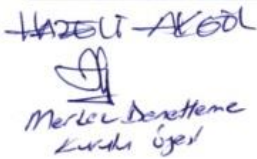 HAZELİ AKGÖL
Merkez Denetleme
Kurulu Üyesi